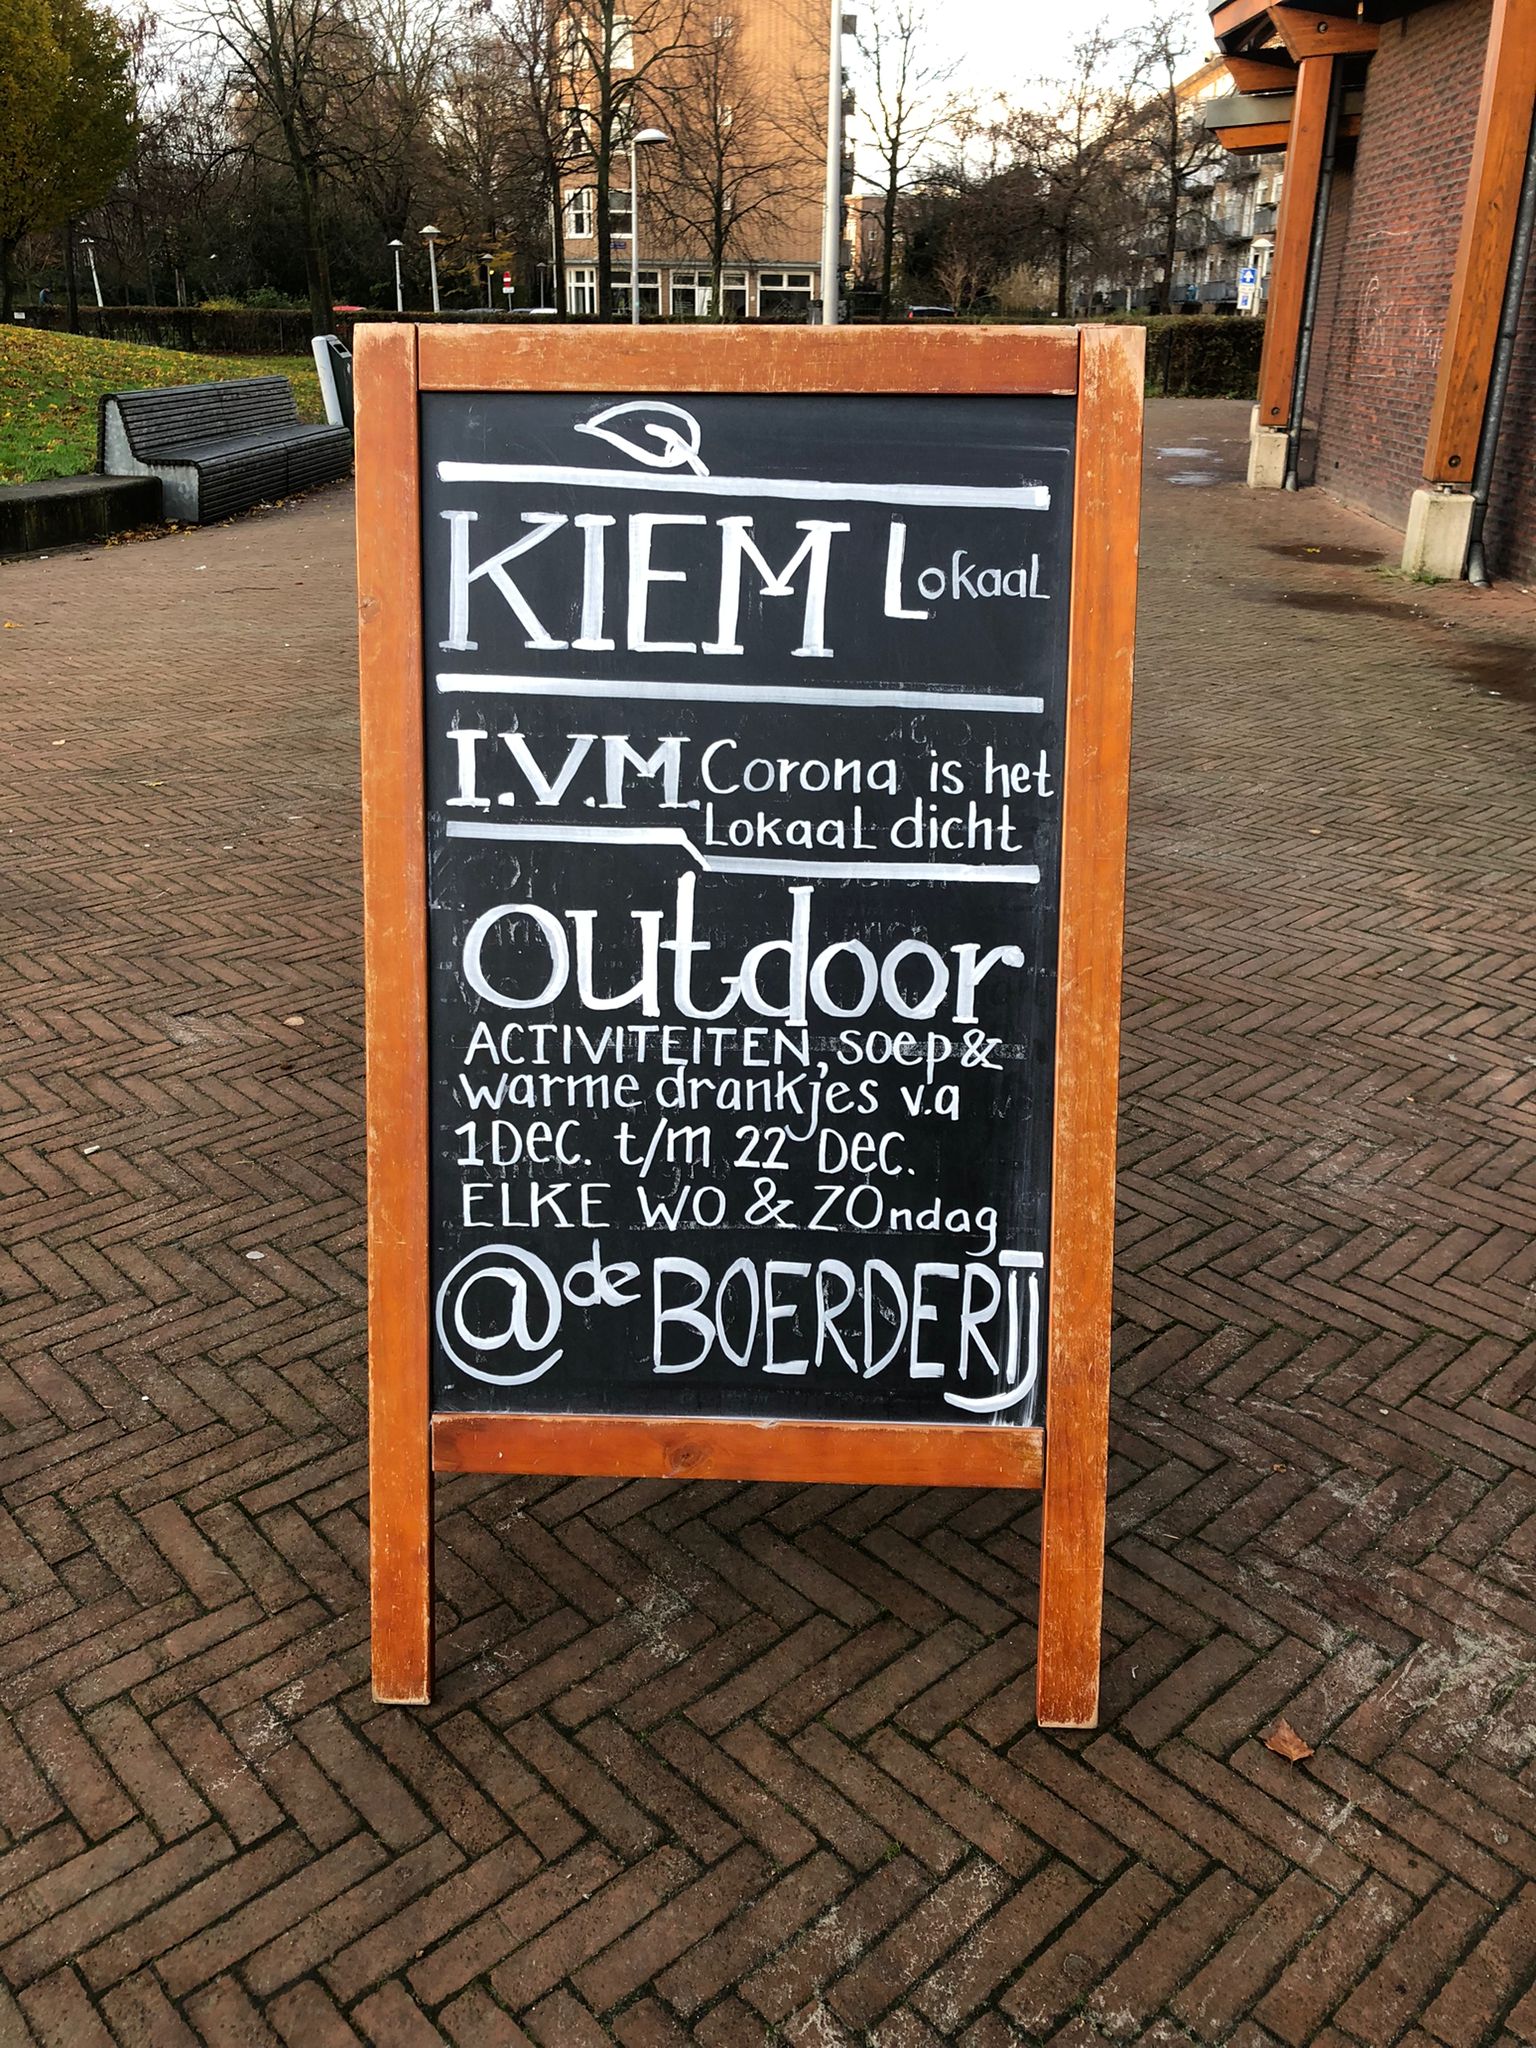 KIEM Lokaal
I.V.M. Corona is het
Lokaal dicht
outdoor
ACTIVITEITEN, soep &
warme drankjes v.a
1 Dec. t/m 22 Dec.
ELKE WO & ZOndag
@ de BOERDERIJ